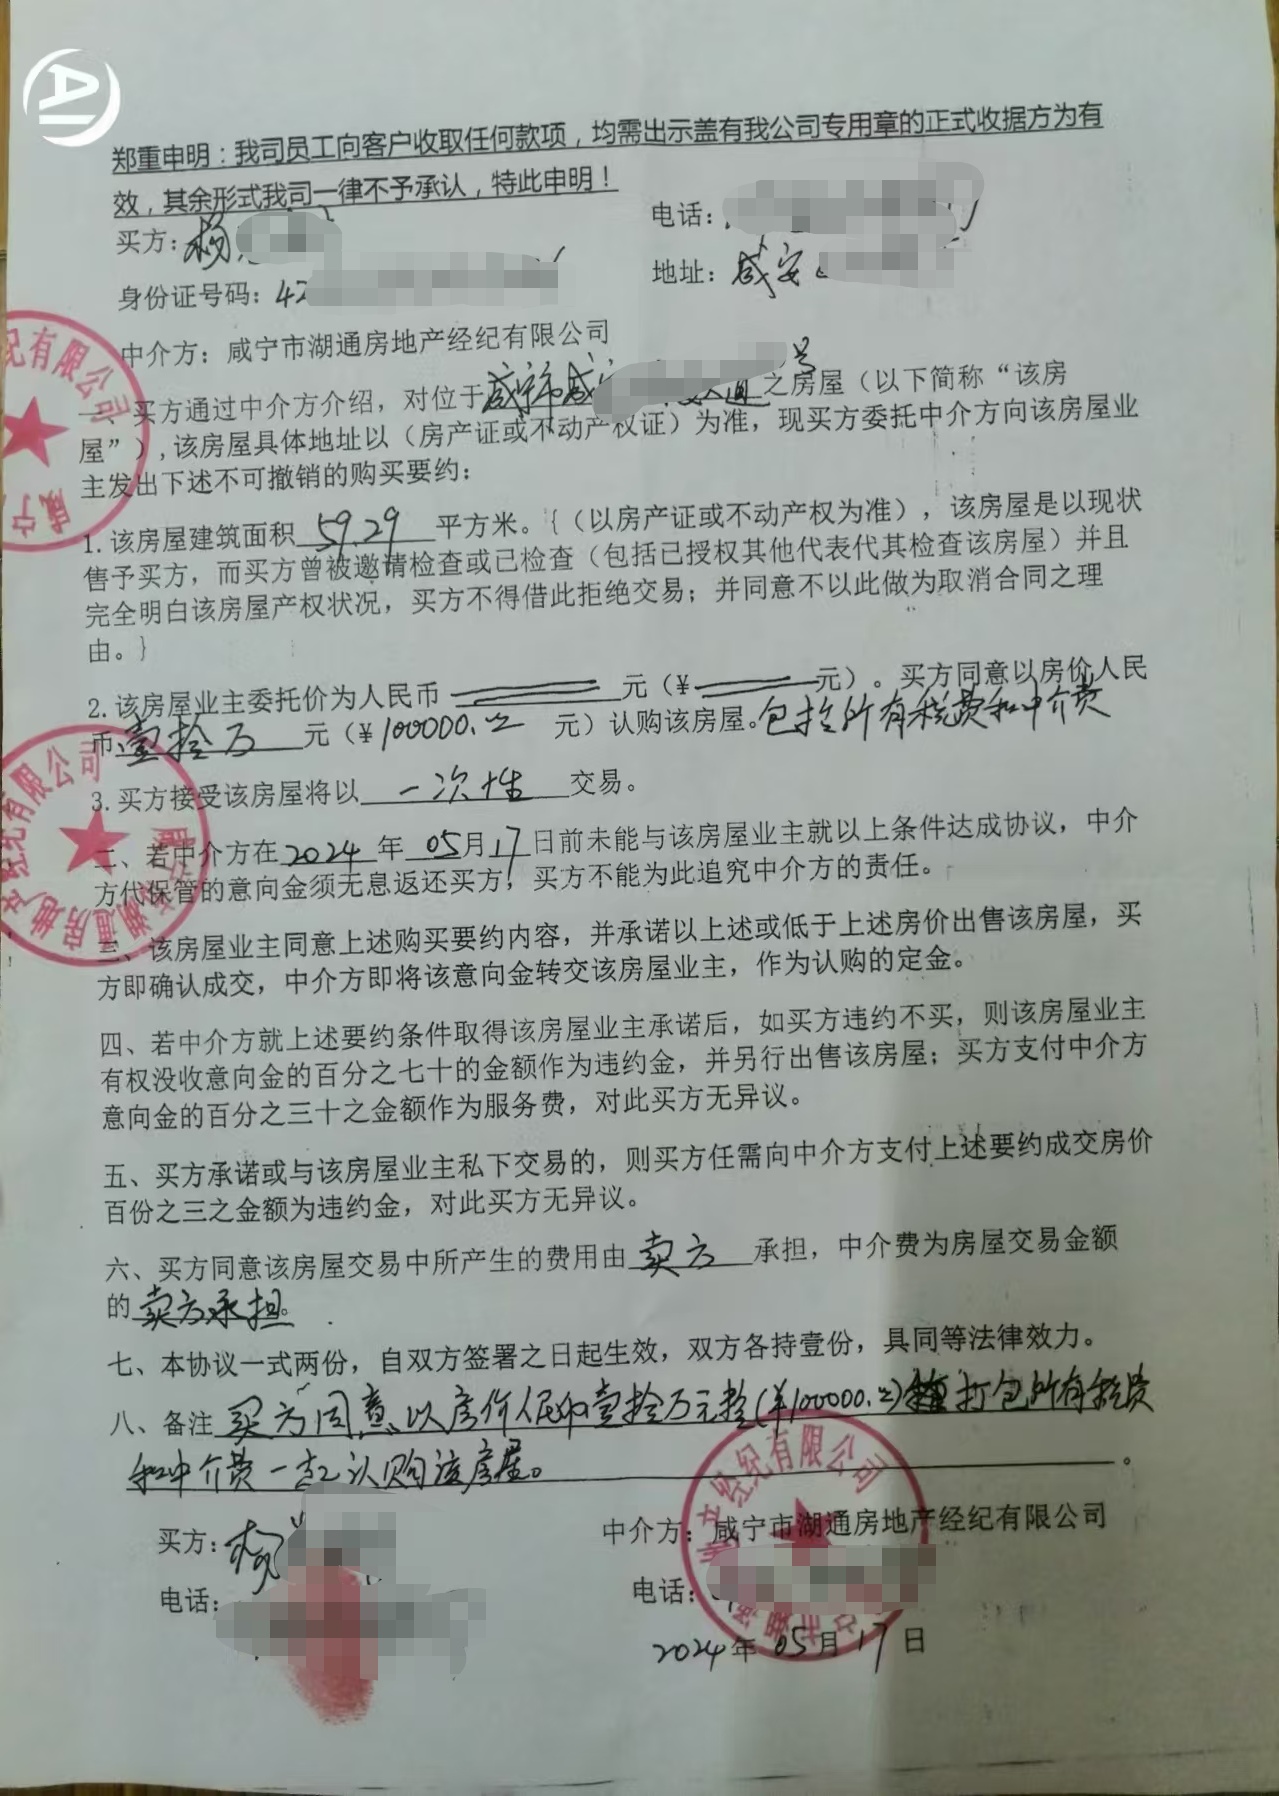 郑重申明：我司员工向客户收取任何款项，均需出示盖有我公司专用章的正式收据方为有
效，其余形式我司一律不予承认，特此申明！
买方：杨
电话：
身份证号码：42
地址：咸安
中介方：咸宁市湖通房地产经纪有限公司
一、买方通过中介方介绍，对位于咸宁市咸 号之房屋（以下简称“该房
屋”），该房屋具体地址以（房产证或不动产权证）为准，现买方委托中介方向该房屋业
主发出下述不可撤销的购买要约：
1.该房屋建筑面积 59.29 平方米。{（以房产证或不动产权为准），该房屋是以现状
售予买方，而买方曾被邀请检查或已检查（包括已授权其他代表代其检查该房屋）并且
完全明白该房屋产权状况，买方不得借此拒绝交易；并同意不以此做为取消合同之理
由。}
2.该房屋业主委托价为人民币 元（¥ 元）。买方同意以房价人民
币 壹拾万 元（¥100000.00 元）认购该房屋。包括所有税费和中介费
3.买方接受该房屋将以 一次性 交易。
二、若中介方在2024 年 05月17日前未能与该房屋业主就以上条件达成协议，中介
方代保管的意向金须无息返还买方，买方不能为此追究中介方的责任。
三、该房屋业主同意上述购买要约内容，并承诺以上述或低于上述房价出售该房屋，买
方即确认成交，中介方即将该意向金转交该房屋业主，作为认购的定金。
四、若中介方就上述要约条件取得该房屋业主承诺后，如买方违约不买，则该房屋业主
有权没收意向金的百分之七十的金额作为违约金，并另行出售该房屋；买方支付中介方
意向金的百分之三十之金额作为服务费，对此买方无异议。
五、买方承诺或与该房屋业主私下交易的，则买方任需向中介方支付上述要约成交房价
百份之三之金额为违约金，对此买方无异议。
六、买方同意该房屋交易中所产生的费用由 卖方 承担，中介费为房屋交易金额
的 卖方承担。
七、本协议一式两份，自双方签署之日起生效，双方各持壹份，具同等法律效力。
八、备注 买方同意以房价人民币壹拾万元整（¥100000.00）打包所有税费
和中介费一起认购该房屋。
买方：杨
中介方：咸宁市湖通房地产经纪有限公司
电话：
电话：
2024年 05月 17 日